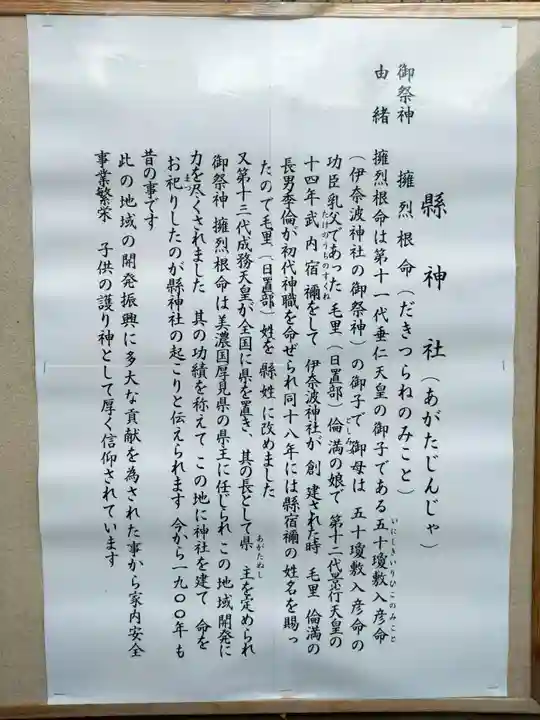 縣神社(あがたじんじゃ)
御祭神 擁烈根命(だきつらねのみこと)
由緒 擁烈根命は第十一代垂仁天皇の御子である五十瓊敷入彦命
いにしきいりひこのみこと
(伊奈波神社の御祭神)の御子で 御母は 五十瓊敷入彦命の
功臣乳父であった 毛里(日置部)倫満の娘で 第十二代景行天皇の
十四年武内宿禰をして 伊奈波神社が 創建された時 毛里 倫満の
たけのうちのすくね
長男季倫が初代神職を命ぜられ同十八年には縣宿禰の姓名を賜っ
たので毛里(日置部)姓を縣姓に改めました
又第十三代成務天皇が全国に県を置き、其の長として県 主を定められ
あがたぬし
御祭神 擁烈根命は美濃国厚見県の県主に任じられ この地域開発に
力を尽くされました 其の功績を称えて この地に神社を建て 命を
お祀りしたのが縣神社の起こりと伝えられます 今から一九〇〇年も
まつ
昔の事です
此の地域の開発振興に多大な貢献を為された事から家内安全
事業繁栄 子供の護り神として厚く信仰されています